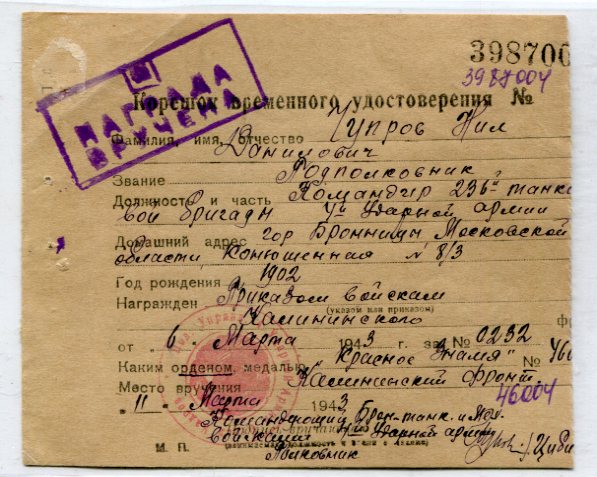 398700
3987004
НАГРАДА
ВРУЧЕНА
Корешок временного удостоверения №
Фамилия, имя, отчество Чупров Нил
Данилович
Звание Подполковник
Должность и часть Командир 236й танко
вой бригады 4й Ударной армии
Домашний адрес гор Бронницы Московской
области, Конюшенная № 8/3
Год рождения 1902
Награжден Приказом войскам
(указом или приказом)
Калининского
от "6" Марта 1943 г. за № 0232
Каким орденом, медалью "Красное Знамя" № 460
Место вручения Калининский фронт.
46004
"11" Марта 1943
Командующий Брон. танк. и
войсками 4й Ударной армии
М. П. Полковник